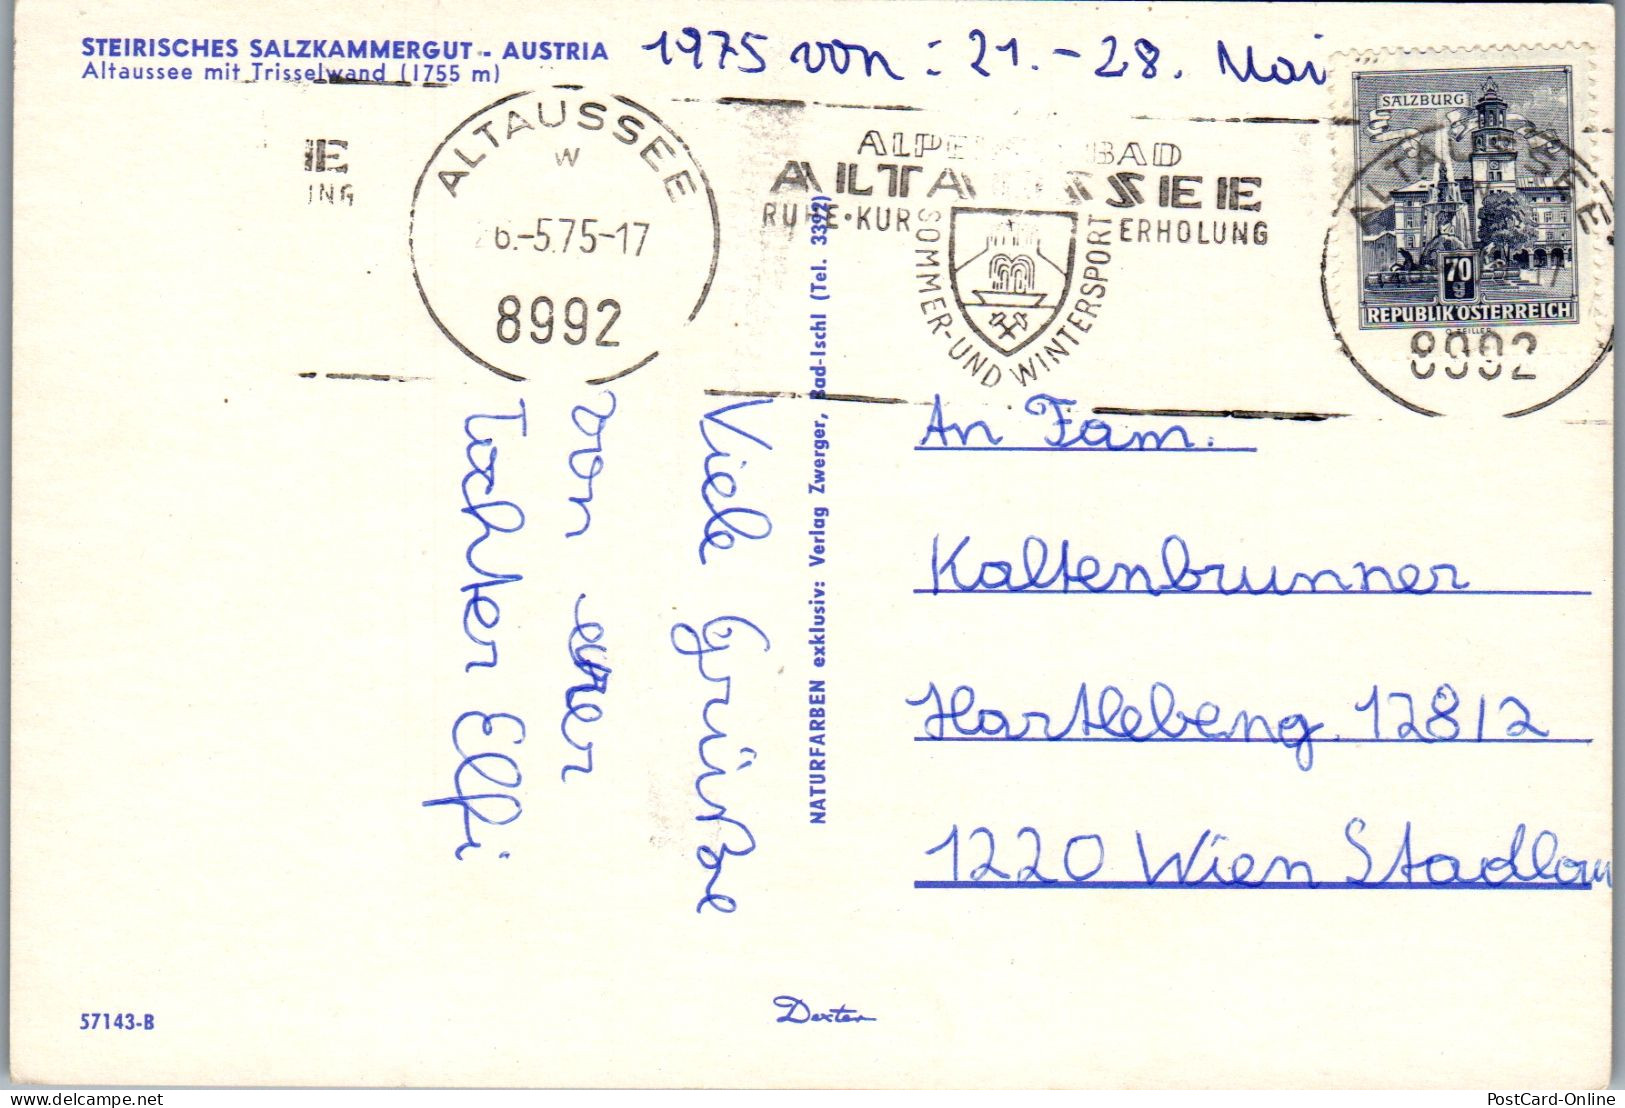 STEIRISCHES SALZKAMMERGUT - AUSTRIA
Altaussee mit Trisselwand (1755 m)
1975 von: 21.-28. Mai
SALZBURG
70
g
REPUBLIK ÖSTERREICH
O. ZEILLER
ALTAUSSEE
8992
IE
ING
ALTAUSSEE
w
26.-5.75-17
8992
BAD
ALTAUSSEE
RUHE·KUR ERHOLUNG
SOMMER-UND WINTERSPORT
Viele Grüße
von eurer
Tochter Elfi
NATURFARBEN exklusiv: Verlag Zwerger, Bad-Ischl (Tel. 3392)
An Fam.
Kaltenbrunner
Hartlebeng. 128/2
1220 Wien Stadlau
57143-B
Dexter
PostCard-Online.com
PostCard-Online